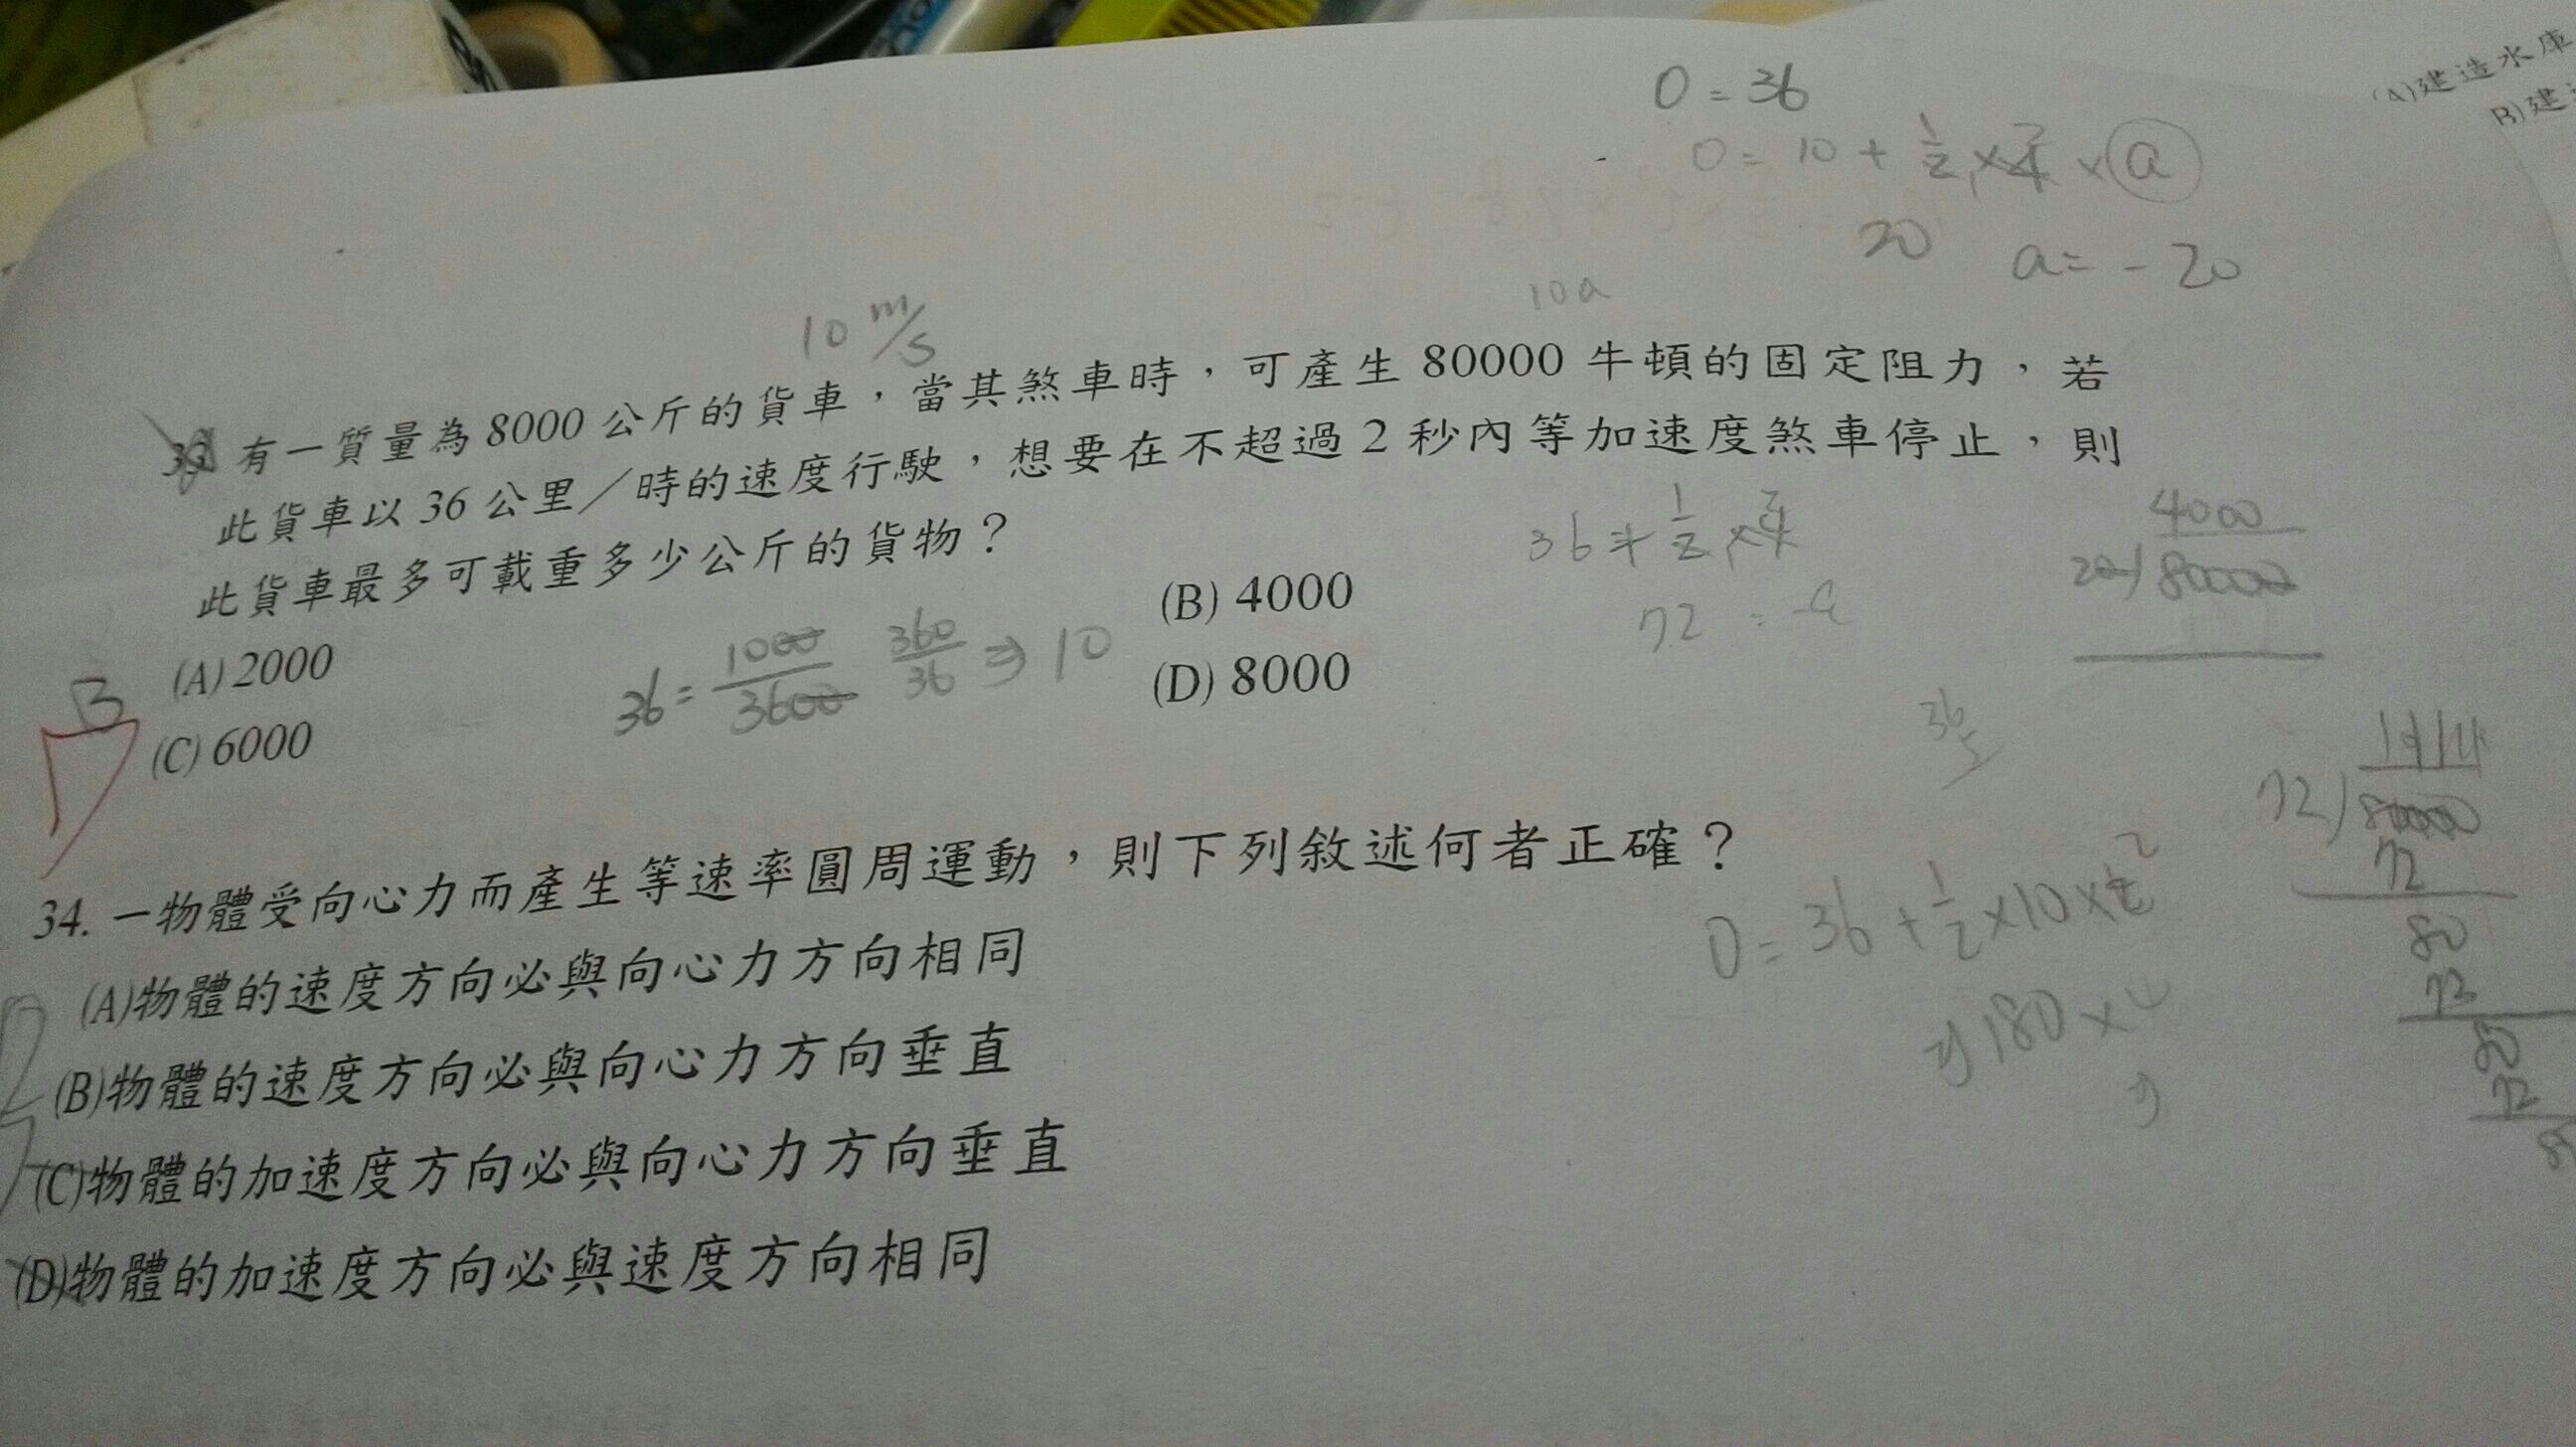 (A)建造水庫
(B)建
0 = 36
0 = 10 + 1/2 × 4 × a
20
a = -20
10 m/s
10a
33. 有一質量為 8000 公斤的貨車，當其煞車時，可產生 80000 牛頓的固定阻力，若
此貨車以 36 公里／時的速度行駛，想要在不超過 2 秒內等加速度煞車停止，則
此貨車最多可載重多少公斤的貨物？
(A) 2000
(B) 4000
(C) 6000
(D) 8000
B
36 = 1000/3600 360/36 ⇒ 10
4000
20)80000
34. 一物體受向心力而產生等速率圓周運動，則下列敘述何者正確？
(A)物體的速度方向必與向心力方向相同
(B)物體的速度方向必與向心力方向垂直
(C)物體的加速度方向必與向心力方向垂直
(D)物體的加速度方向必與速度方向相同
0 = 36 + 1/2 × 10 × t²
72
80
72
80
72